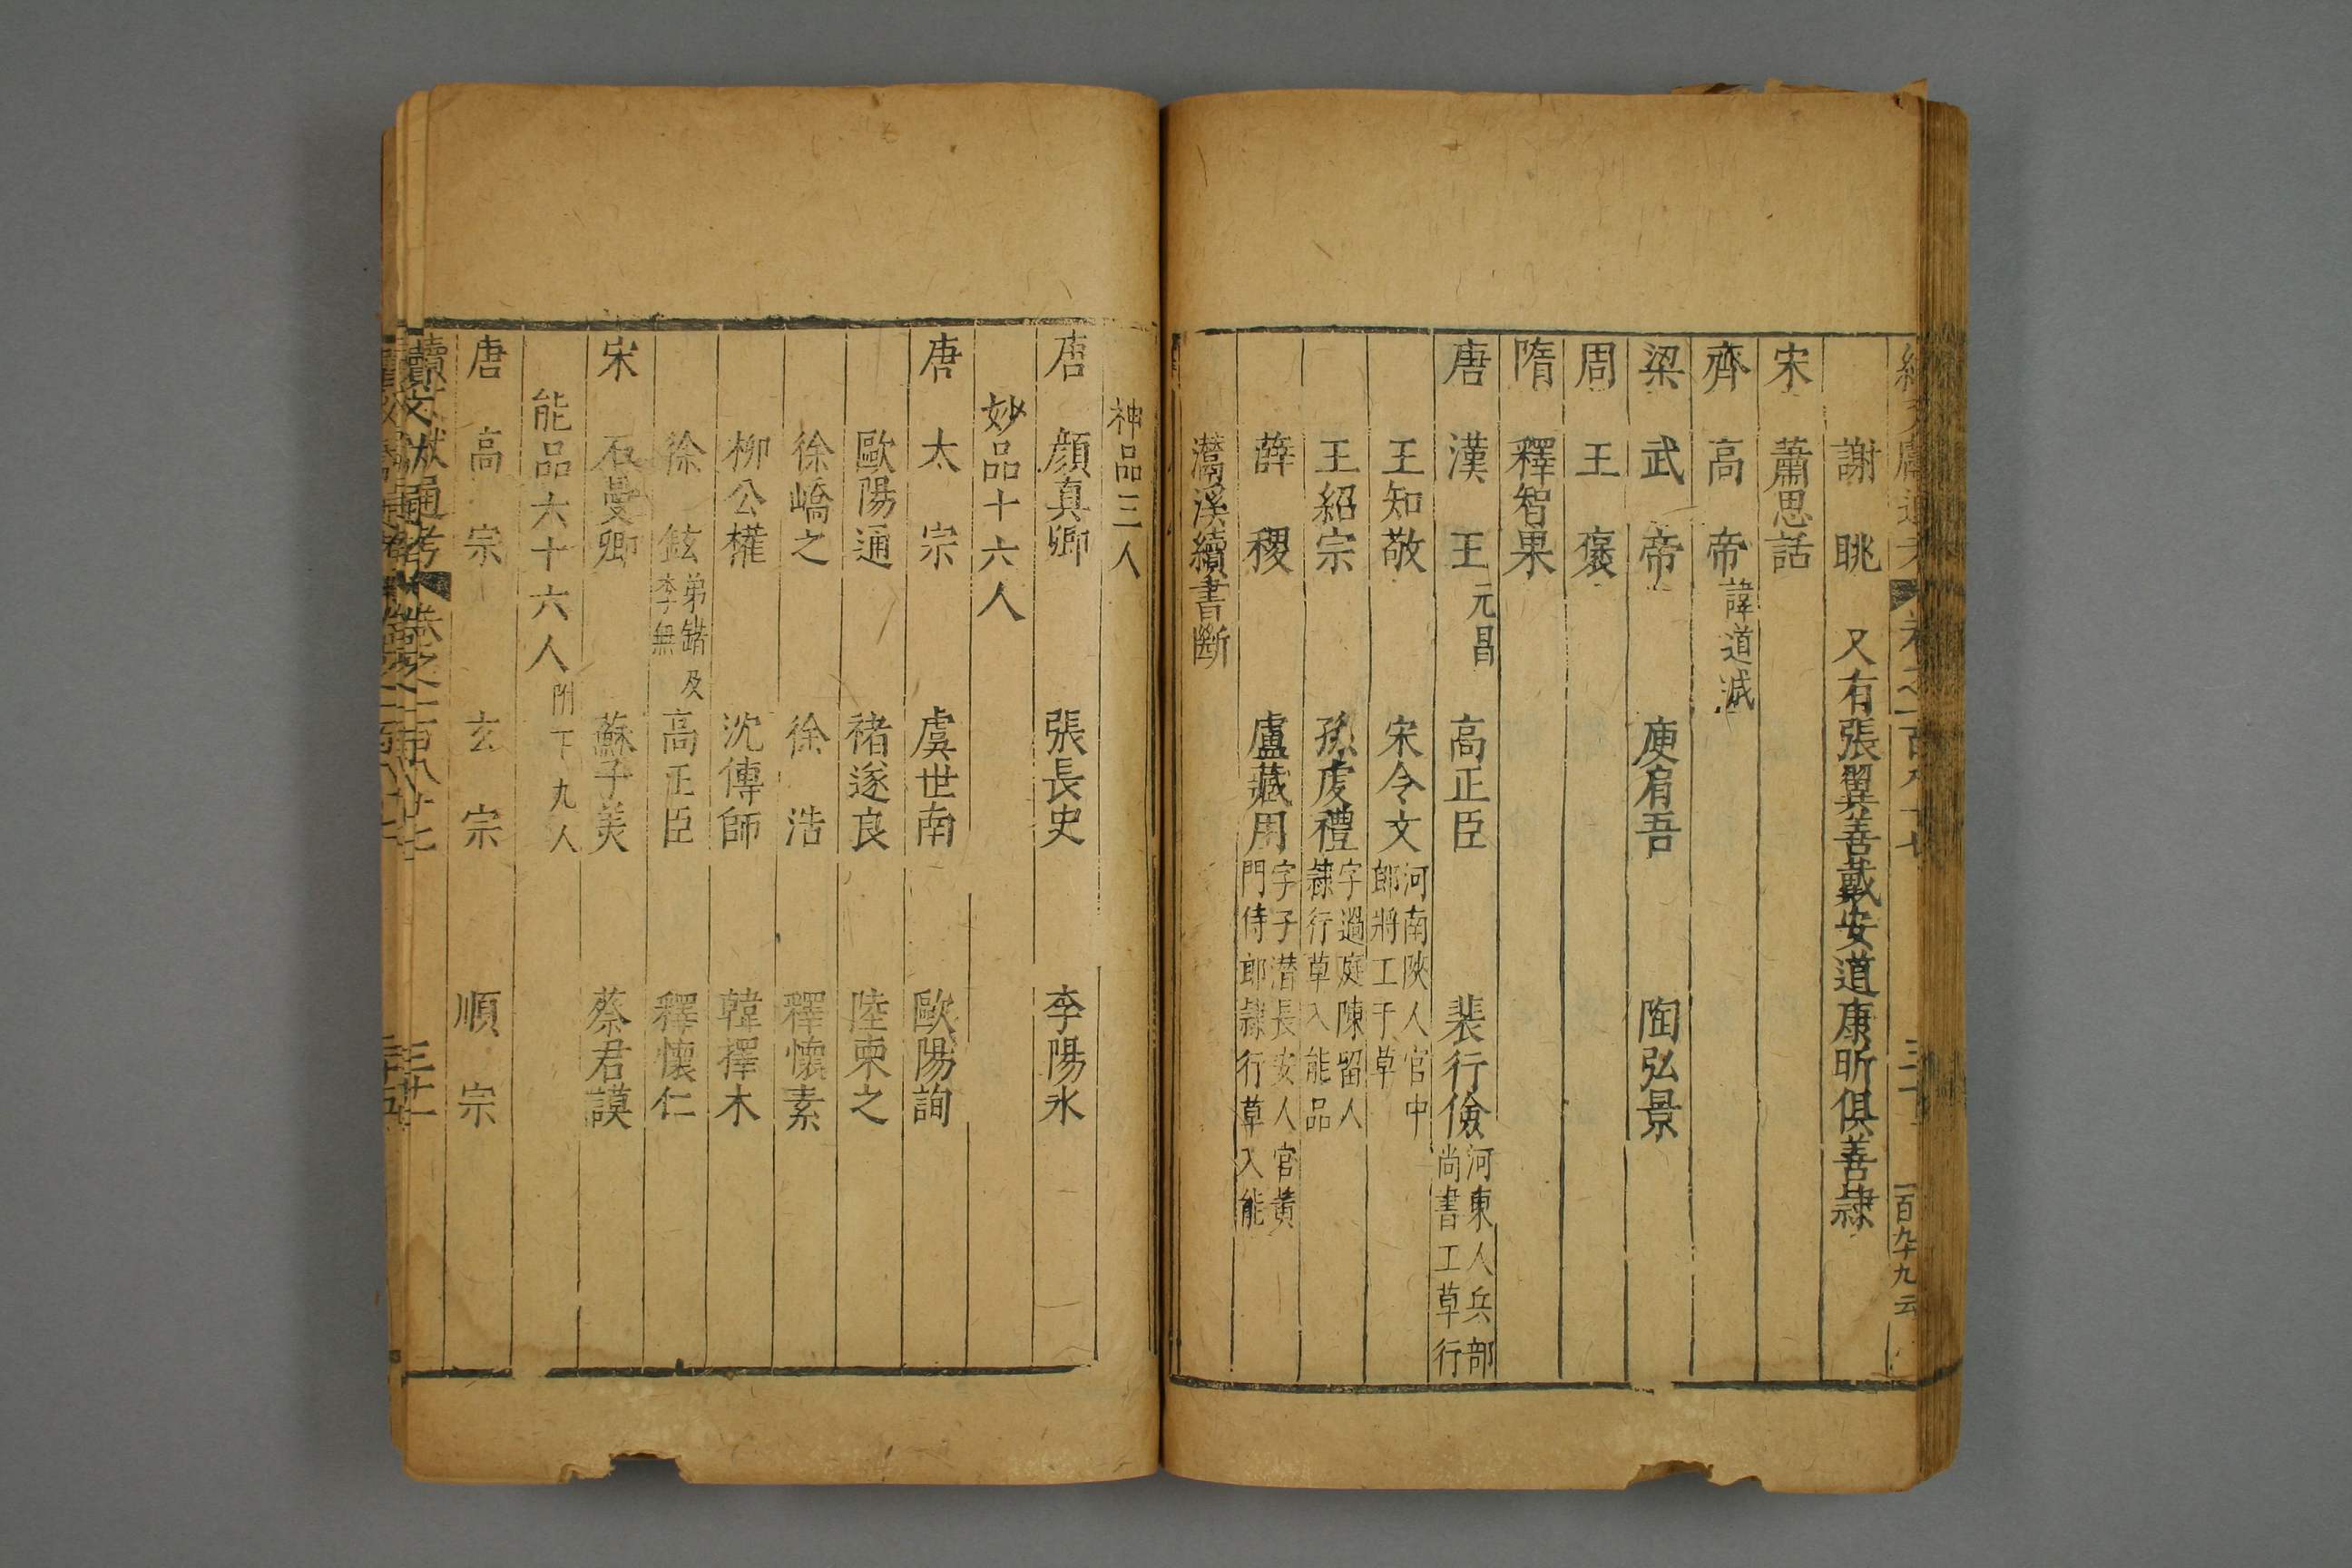 謝眺 又有張翼善戴安道康昕俱善隸
宋 蕭思話
齊 高帝 諱道成
梁 武帝 庾肩吾 陶弘景
周 王褒
隋 釋智果
唐 漢王 元昌 高正臣 裴行儉 河東人兵部尚書工草行
王知敬 宋令文 河南陝人官中郎將工于草
王紹宗 孫虔禮 字過庭陳留人隸行草入能品
薛稷 盧藏用 字子潜長安人官黃門侍郎隸行草入能
灊溪續書斷
神品三人
唐 顔真卿 張長史 李陽氷
妙品十六人
唐 太宗 虞世南 歐陽詢
歐陽通 褚遂良 陸柬之
徐嶠之 徐浩 釋懷素
柳公權 沈傳師 韓擇木
徐鉉 弟鍇及李無 高正臣 釋懷仁
宋 石曼卿 蘇子美 蔡君謨
能品六十六人 附下九人
唐 高宗 玄宗 順宗
續文獻通考 卷之一百八十七